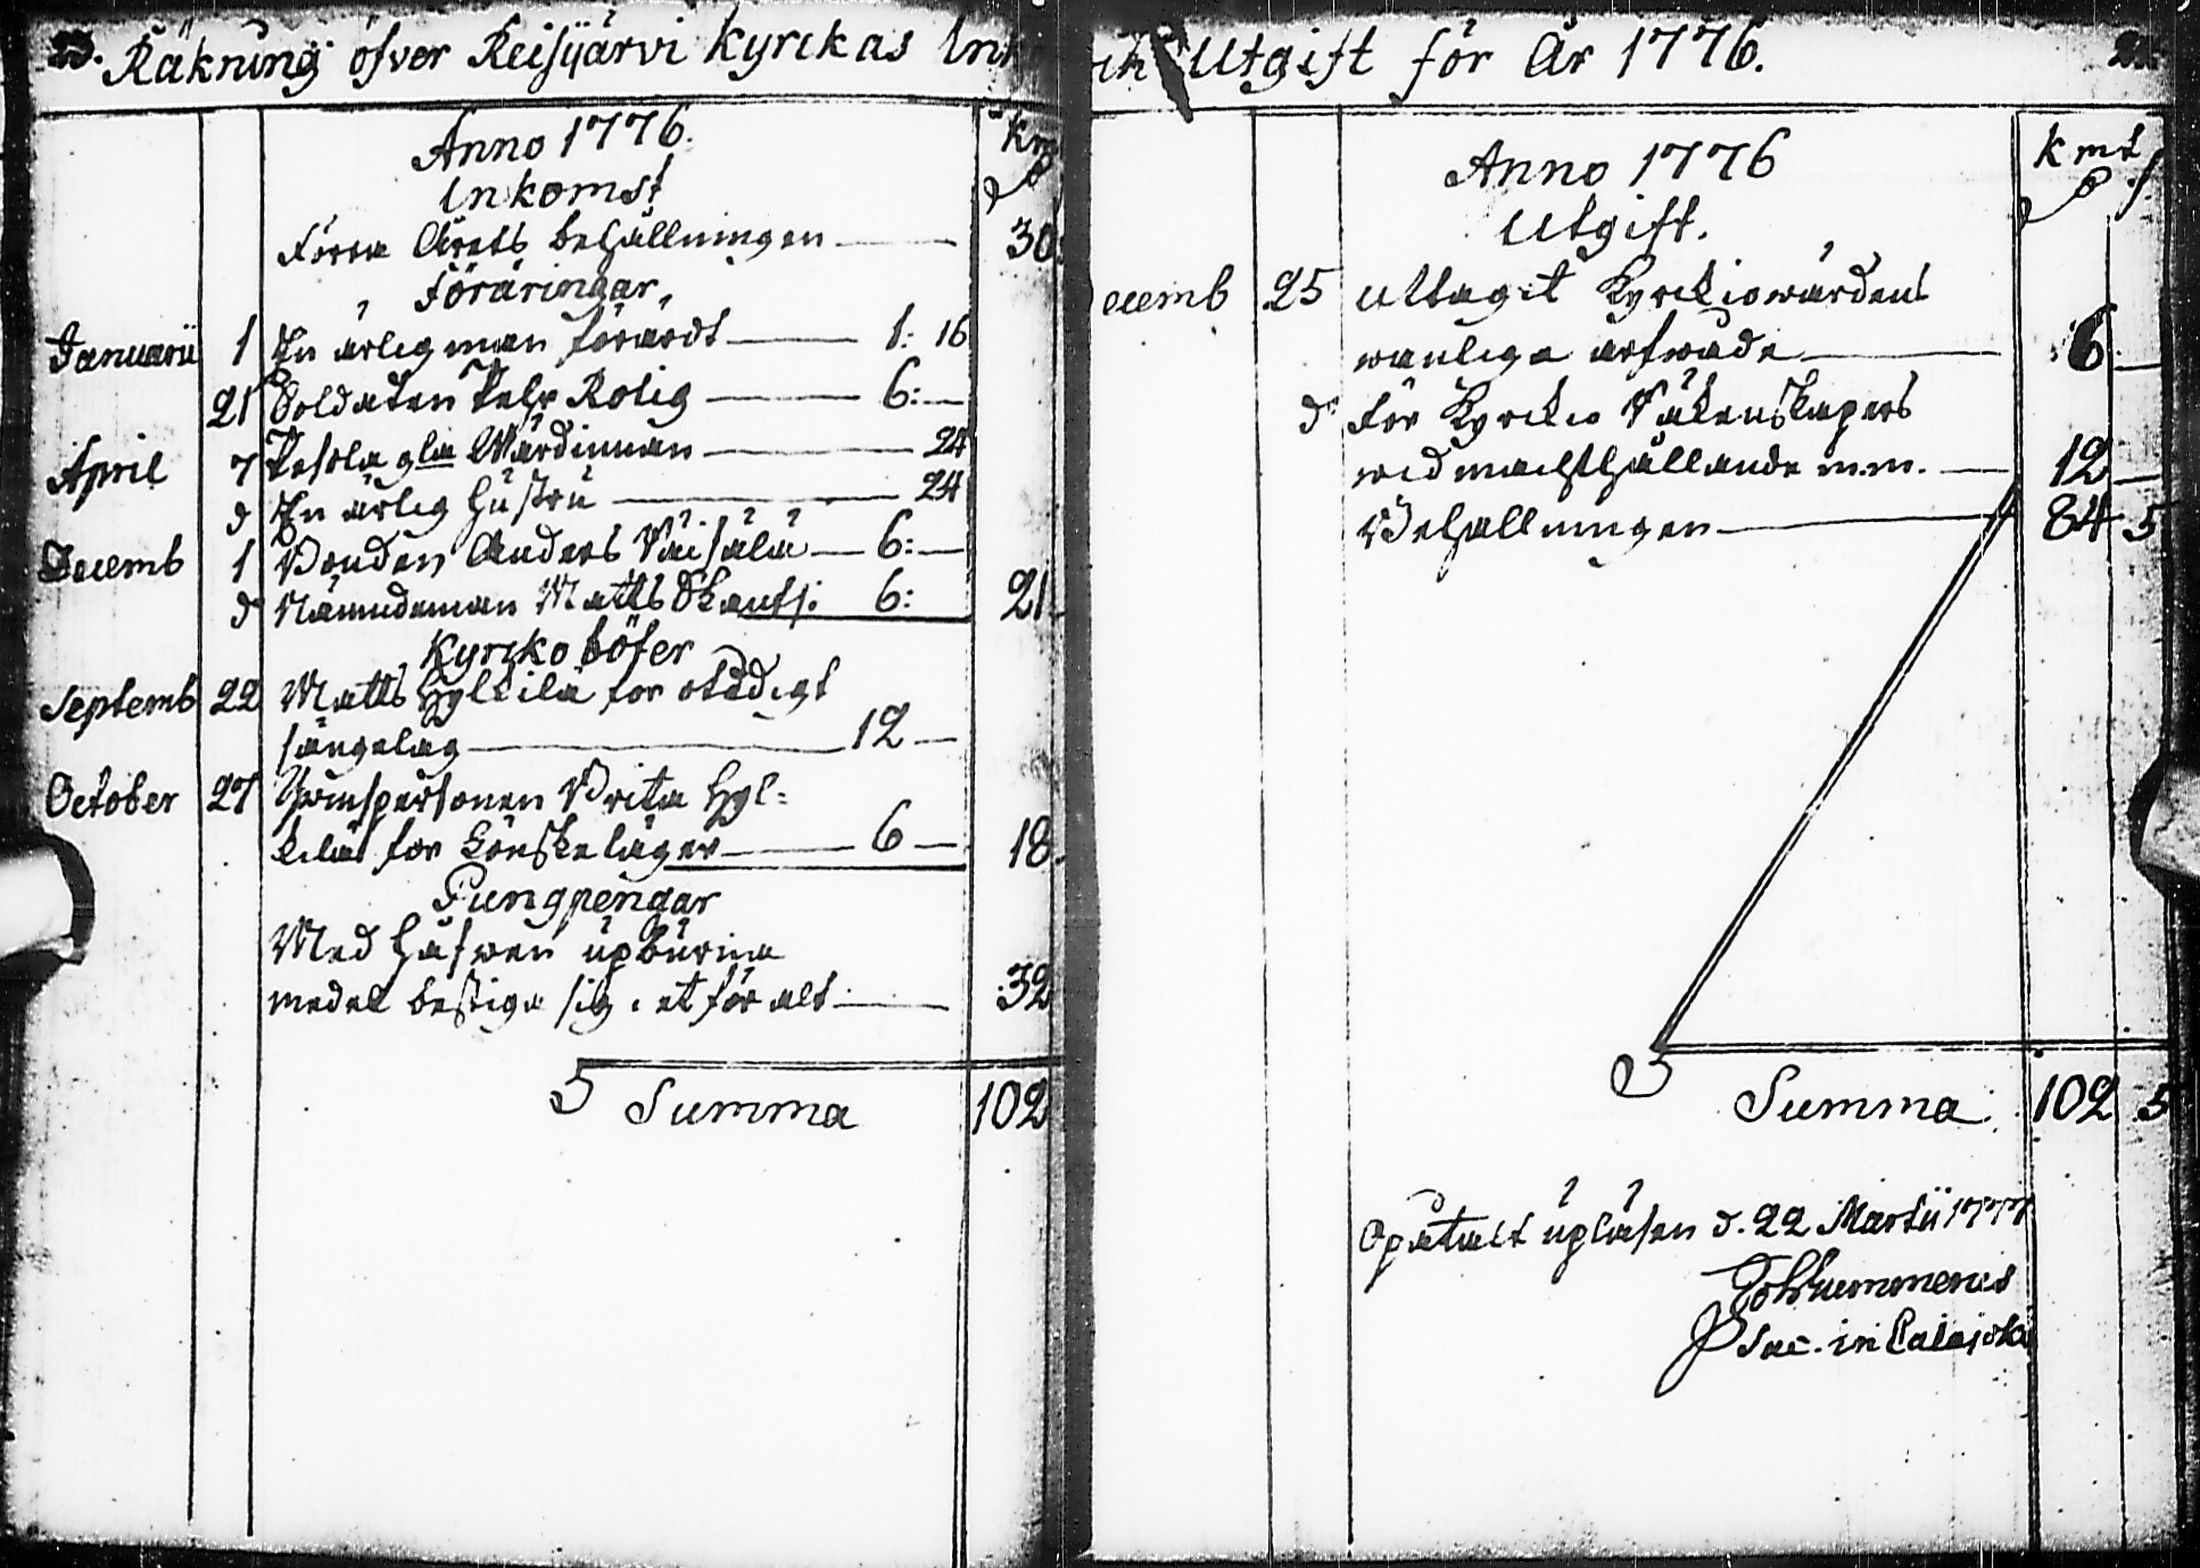 Räkning öfver Reisijärvi Kyrckas Ink
och Utgift för År 1776.
Anno 1776.
Inkomst
Km
Förra Årets behållningen 30
Föräringar,
Januarii 1 En ärlig man förärdt 1: 16
21 Soldaten Pehr Rolig 6:
April 7 Pesola gla Wärdinnan 24
d En ärlig hustru 24
Decemb 1 Bonden Anders Väisälä 6:
d Nämndeman Matts 6: 21
Kyrcko böter
Septemb 22 Matts Hylkilä för otidigt
sängelag 12
October 27 Qwinspersonen Brita Hyl=
kilä för Lönskeläger 6 18
Pungpengar
Med håfwen upburna
medel bestiga sig i et för alt 32
Summa 102
Anno 1776
Utgift.
Kmt
ecemb 25 uttagit Kyrckiowärdens
wanliga arfwode 6
d För Kyrckio Räkenskapers
widmachthållande m.m. 12
Behållningen 84 5
Summa 102 5
Opåtalt upläsen d. 22 Martii 1777
Sac. in